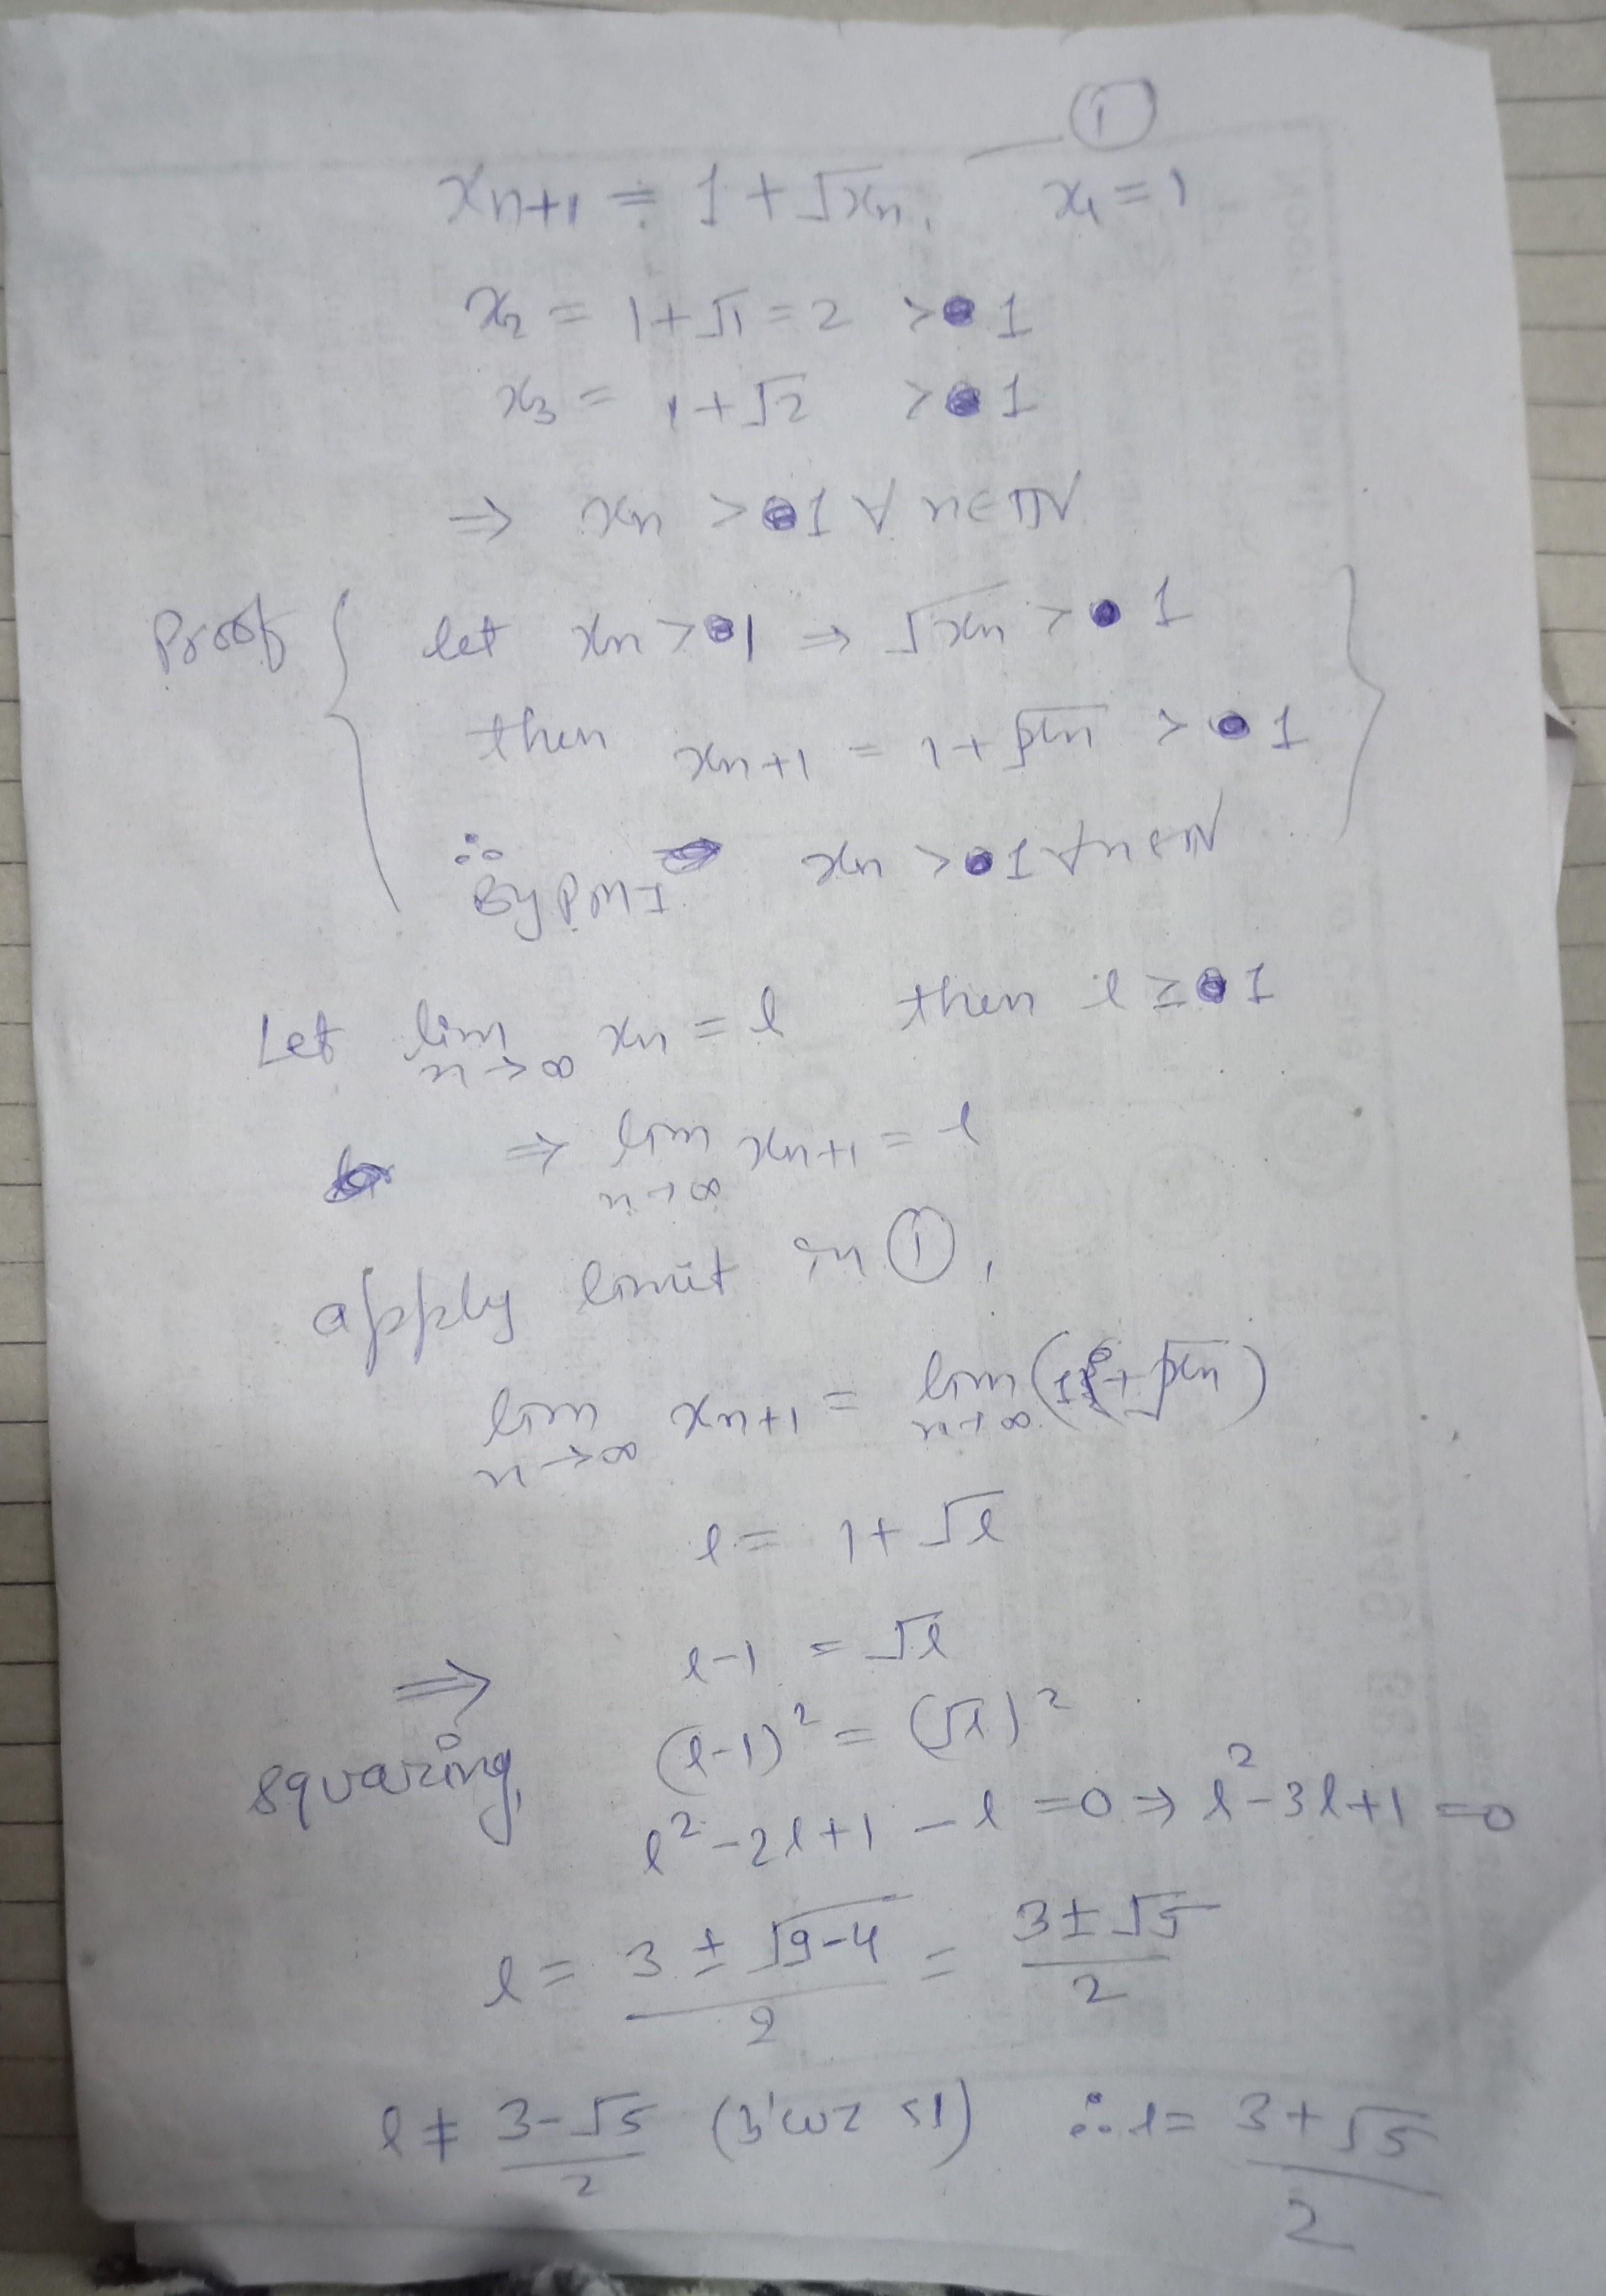 ①
xₙ₊₁ = 1 + √xₙ, x₁ = 1
x₂ = 1+√1 = 2 > 1
x₃ = 1+√2 > 1
⇒ xₙ > 1 ∀ n∈ℕ
Proof { let xₙ > 1 ⇒ √xₙ > 1 }
then xₙ₊₁ = 1+√xₙ > 1
∴ By PMI xₙ > 1 ∀n∈ℕ
Let lim n→∞ xₙ = l then l ≥ 1
⇒ lim n→∞ xₙ₊₁ = l
apply limit in ①,
lim n→∞ xₙ₊₁ = lim n→∞ (1+√xₙ)
l = 1+√l
⇒ l-1 = √l
squaring, (l-1)² = (√l)²
l²-2l+1-l = 0 ⇒ l²-3l+1 = 0
l = (3 ± √9-4)/2 = (3±√5)/2
l ≠ (3-√5)/2 (b'coz <1) ∴ l = (3+√5)/2